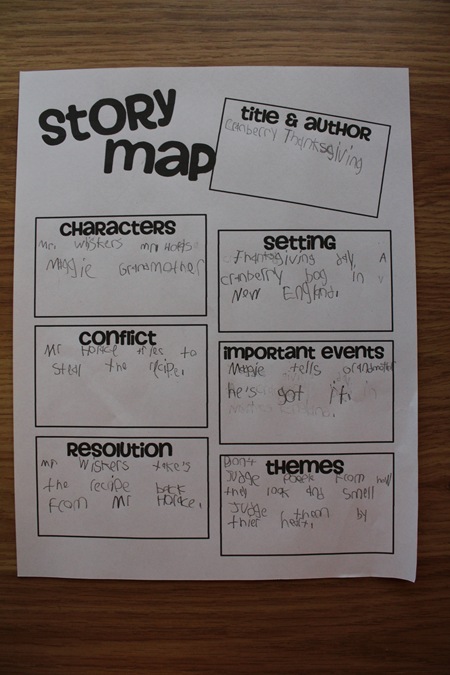 Story
map
title & author
Cranberry Thanksgiving
Characters
Mr. Wiskers Mr. 
Maggie Grandmother
Setting
Thanksgiving day, A
cranberry bog in
New England.
Conflict
Mr Horace tries to
steal the recipe.
important events
Maggie tells grandmother
he's got it
Resolution
Mr Wiskers take's
the recipe back
From Mr Horace.
themes
Don't
Judge People From how
they look and smell
Judge them by
thier heart.